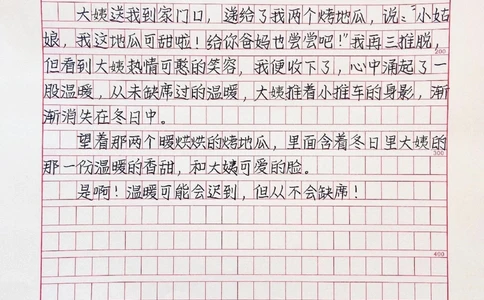 大姨送我到家门口，递给了我两个烤地瓜，说："小姑
娘，我这地瓜可甜啦！给你爸妈也尝尝吧！"我再三推脱，
200
但看到大姨热情可憨的笑容，我便收下了，心中涌起了一
股温暖，从未缺席过的温暖，大姨推着小推车的身影，渐
渐消失在冬日中。
望着那两个暖烘烘的烤地瓜，里面含着冬日里大姨的
300
那一份温暖的香甜，和大姨可爱的脸。
是啊！温暖可能会迟到，但从不会缺席！
400